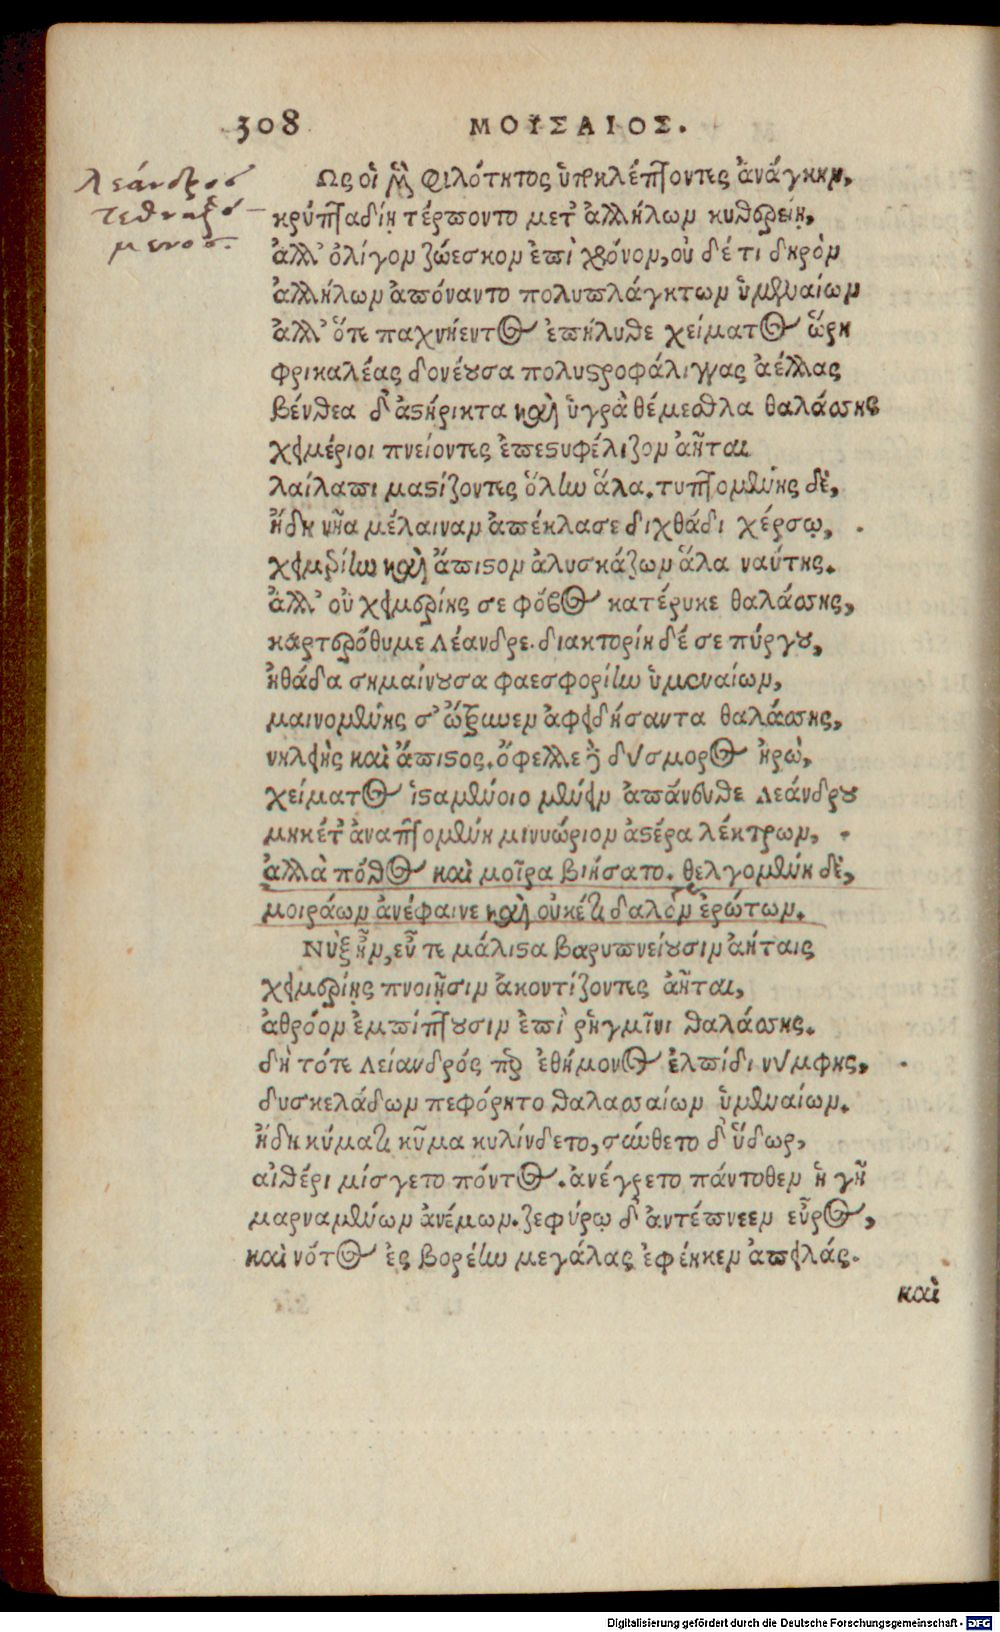 308 ΜΟΥΣΑΙΟΣ.
λεάνδρος
τεθνηξό
μενος.
Ως οἱ μὲν φιλότητος ὑποκλέπτοντες ἀνάγκην,
κρυπταδίῃ τέρποντο μετ' ἀλλήλων κυθερείῃ,
ἀλλ' ὀλίγον ζώεσκον ἐπὶ χρόνον, οὐ δέ τι δηρὸν
ἀλλήλων ἀπόναντο πολυπλάγκτων ὑμεναίων
ἀλλ' ὅτε παχνήεντος ἐπήλυθε χείματος ὥρη
φρικαλέας δονέουσα πολυστροφάλιγγας ἀέλλας
βένθεα δ' ἀστήρικτα καὶ ὑγρὰ θέμεθλα θαλάσσης
χειμέριοι πνείοντες ἐπεστυφέλιζον ἀῆται
λαίλαπι μαστίζοντες ὅλην ἅλα. τυπτομένης δὲ,
ἤδη νῆα μέλαιναν ἀπέκλασε διχθάδι χέρσῳ,
χειμερίην καὶ ἄπιστον ἀλυσκάζων ἅλα ναύτης.
ἀλλ' οὐ χειμερίης σε φόβος κατέρυκε θαλάσσης,
καρτερόθυμε Λέανδρε. διακτορίη δέ σε πύργου,
ἠθάδα σημαίνουσα φαεσφορίην ὑμεναίων,
μαινομένης σ' ὤτρυνεν ἀφειδήσαντα θαλάσσης,
νηλειὴς καὶ ἄπιστος. ὄφελλε δὲ δύσμορος ἡρὼ,
χείματος ἱσταμένοιο μένειν ἀπάνευθε Λεάνδρου
μηκέτ' ἀναπτομένη μινυώριον ἀστέρα λέκτρων,
ἀλλὰ πόθος καὶ μοῖρα βιήσατο. θελγομένη δὲ,
μοιράων ἀνέφαινε καὶ οὐκέτι δαλὸν ἐρώτων.
Νὺξ ἦν, εὖ τε μάλιστα βαρυπνείουσιν ἀήταις
χειμερίῃς πνοιῇσιν ἀκοντίζοντες ἀῆται,
ἀθρόον ἐμπίπτουσιν ἐπὶ ῥηγμῖνι θαλάσσης.
δὴ τότε Λείανδρός περ ἐθήμονος ἐλπίδι νύμφης,
δυσκελάδων πεφόρητο θαλασσαίων ὑμεναίων.
ἤδη κύματι κῦμα κυλίνδετο, σύνθετο δ' ὕδωρ,
αἰθέρι μίσγετο πόντος. ἀνέγρετο πάντοθεν ἡ γῆ
μαρναμένων ἀνέμων. ζεφύρῳ δ' ἀντέπνεεν εὖρος,
καὶ νότος ἐς βορέην μεγάλας ἐφέηκεν ἀπειλάς.
καὶ
Digitalisierung gefördert durch die Deutsche Forschungsgemeinschaft - DFG